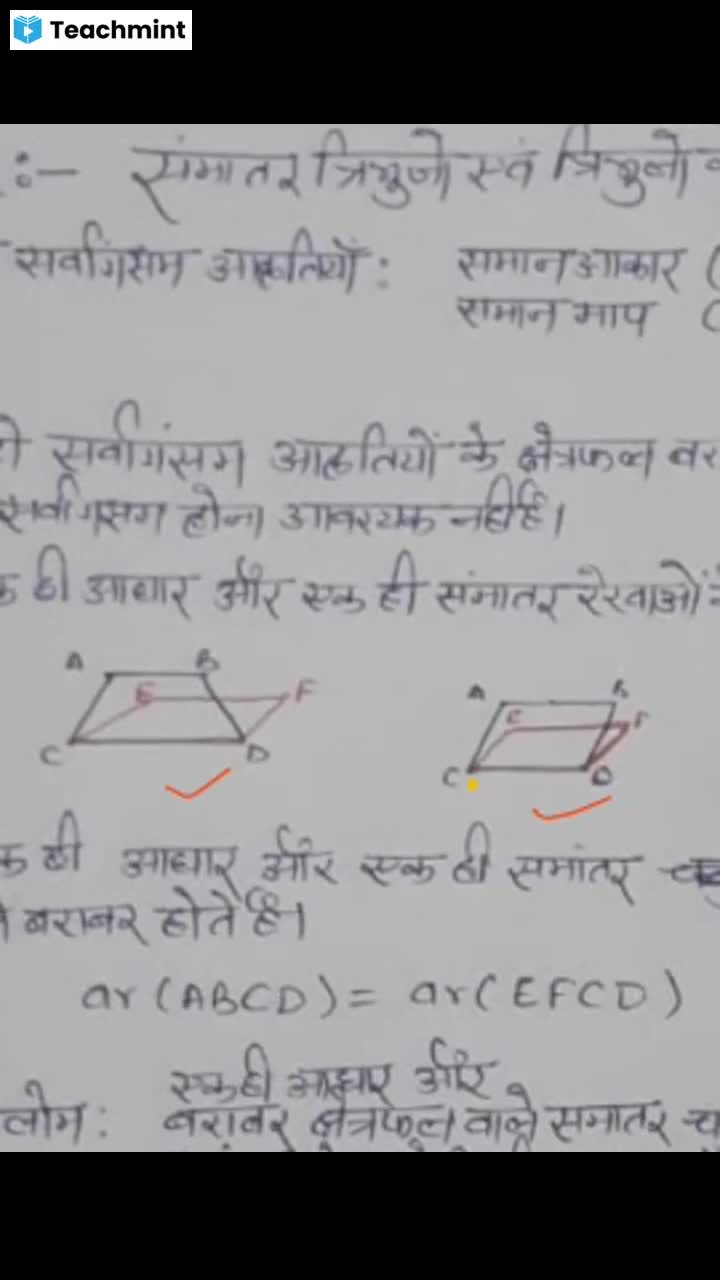 Teachmint
:- संमातर त्रिभुजो एवं त्रिभुजो
सर्वागंसम आकृतियाँ : समान आकार (
समान माप (
सर्वागंसम आकृतियों के क्षेत्रफल बर
सर्वागसम होना आवश्यक नहीं है।
क ही आधार और एक ही संमातर रेखाओं
A B E F C D
A B E F C D
क ही आधार और एक ही समांतर
बराबर होते है।
ar (ABCD) = ar (EFCD)
एक ही आधार और
लोम : बराबर क्षेत्रफल वाले समातर च